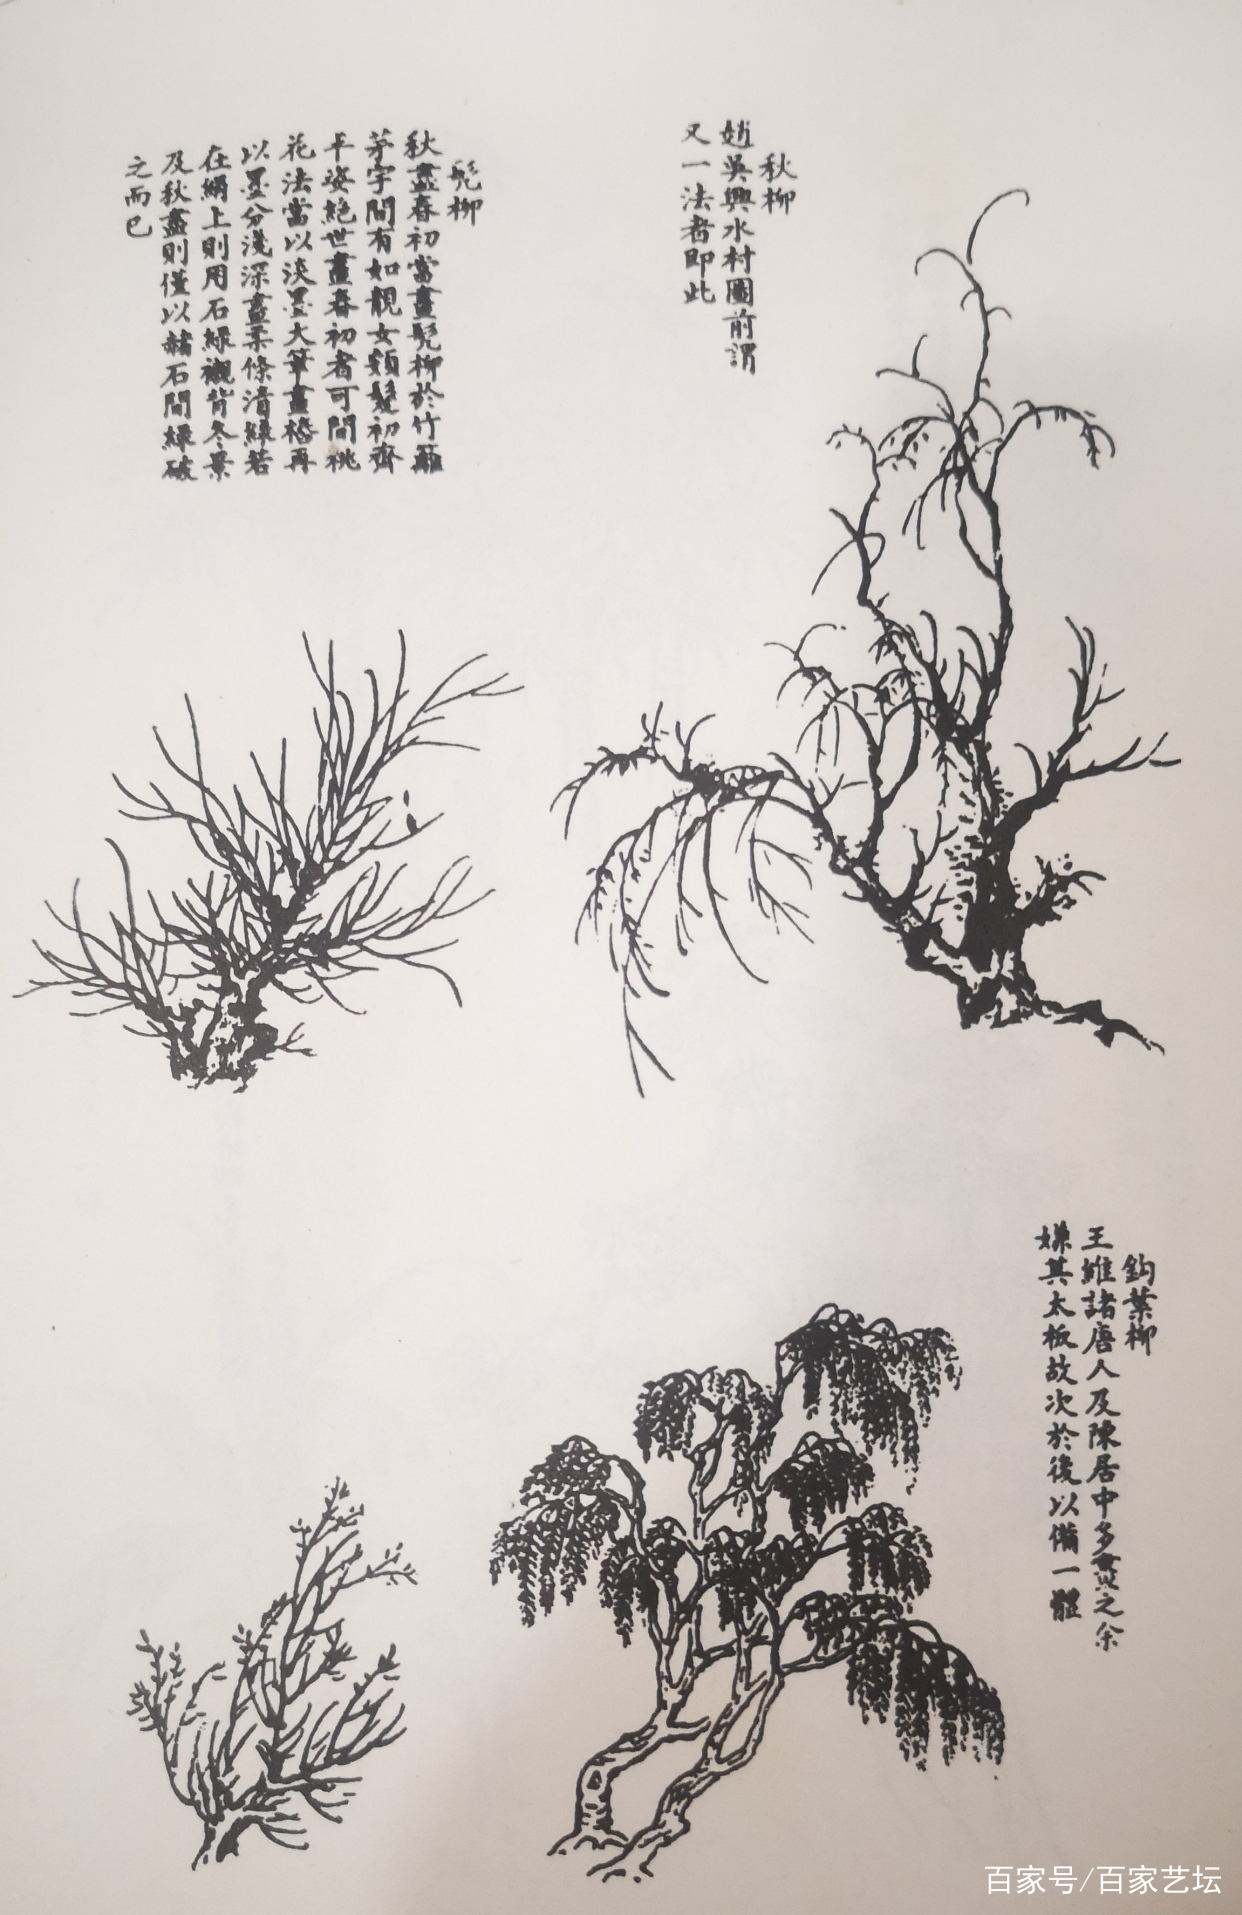 秋柳
趙吳興水村圖前謂
又一法者即此
髠柳
秋盡春初當畫髠柳於竹籬
茅宇間有如靚女頮髮初齊
丰姿絕世畫春初者可間桃
花法當以淡墨大筆畫樁再
以墨分淺深畫柔條漬綠若
在絹上則用石綠襯背冬景
及秋盡則僅以赭石間綠破
之而已
鈎葉柳
王維諸唐人及陳居中多畫之余
嫌其太板故次於後以備一體
百家号/百家艺坛